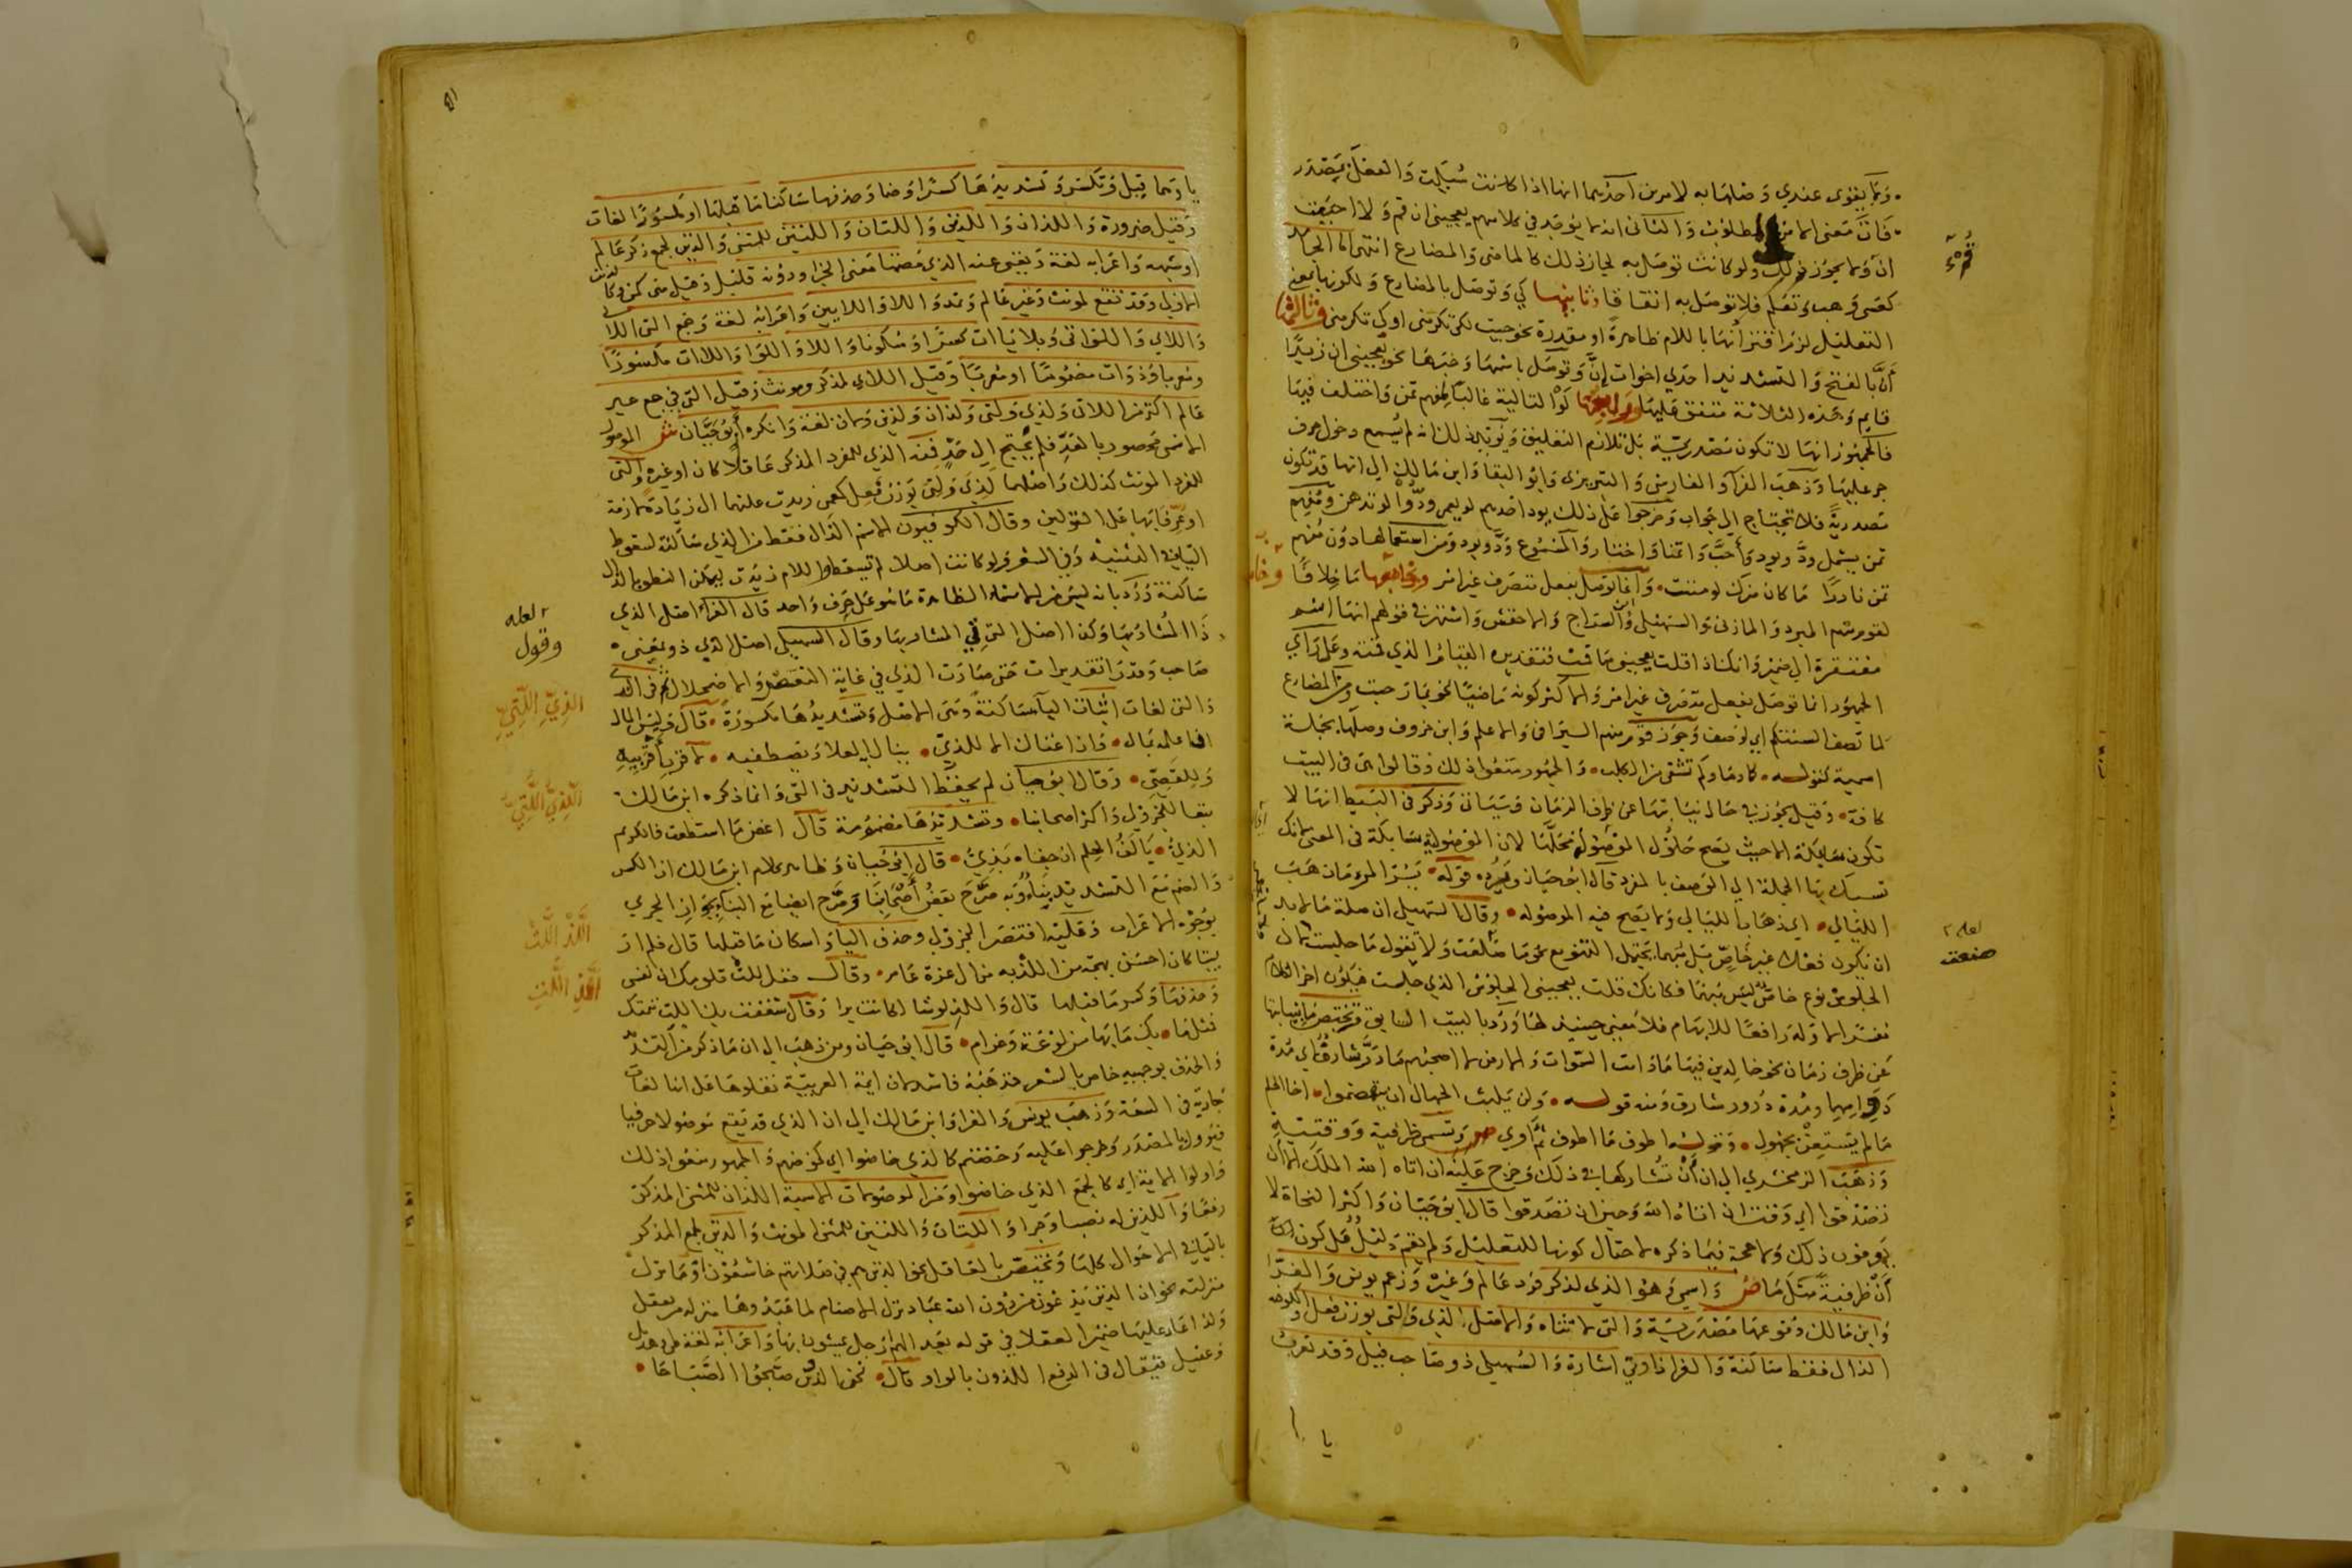 وَمما يقوى عندي وَصلها به لامرين احدهما انها اذا كانت سُبكت وَالفعل بمصدر
فات معنى الامر المطلوب وَالثاني انه لم يوجد في كلامهم يعجبني ان قم وَلا احببت
ان قم ولا يجوز ذلك ولو كانت توصل به لجاز ذلك كالماضى وَالمضارع انتهى اما الجامد
كعسى وَهب وَتعلم فلا توصل به اتفاقا وثانيها كي وَتوصل بالمضارع وَلكونها بمعنى
التعليل لزم اقترانها باللام ظاهرة او مقدرة نحو جيت لكى تكرمنى او كى تكرمنى وثالثها
أنَّ بالفتح وَالتشديد احدي اخوات إنّ وَتوصل باسمها وَخبرها نحو يعجبنى ان زيدًا
قايم وَهذه الثلاثة متفق عليها ورابعها لَوْ التالية غالبًا مُفهم تمن وَاختلف فيها
فالجمهور انها لا تكون مصدرية بل تلازم التعليق وَيؤيد ذلك انه لم يُسمع دخول حرف
جر عليها وَذهب الفرا وَالفارسى وَالتبريزى وَابو البقا وَابن مالك الى انها قد تكون
مصدرية فلا تحتاج الى جواب وَخرجوا على ذلك يود احدهم لو يعمر ودُّوا لو تدهن وَمُفهم
تمن يشمل ودَّ ويود وَأحبَّ وَاتمنا وَاختار وَالمسموع ودّ ويود وَمن استعمالها دون مُفهم
تمن نادرًا ما كان ضرك لو مننت وَانما توصل بفعل متصرف غير امر وخامسها ما خلافًا
لقوم منهم المبرد وَالمازنى وَالسهيلى وَابن السراج وَالاخفش وَاشتهر في قولهم انها اسم
مفتقرة الى ضمير وَانك اذا قلت يعجبنى ما قمت فتقديره القيام الذي قمته وَعلى راي
الجمهور انما توصل بفعل متصرف غير امر وَالاكثر كونه ماضيًا نحو بما رحبت ومن المضارع
لما تصف السنتكم اي لوصف وَجوز قوم منهم السيرافى وَالاعلم وَابن خروف وصلها بجملة
اسمية كقوله كما دماؤكم تشفى من الكلب وَالجمهور منعوا ذلك وَقالوا هى في البيت
كافة وَقيل يجوز في حال نيابتها عن ظرف الزمان وَسياتى وَذكر في البسيط انها لا
تكون سابكة الا حيث يصح حلول الموصول محلها لان الموصولية سابكة فى المعنى لانك
تسبك بها الجملة الى الوصف بالمفرد قال ابو حيان ويرده قوله يسر المرء ما ذهب
الليالى اي ذهاب الليالى وَلا يصح فيه الموصولة وقال السهيلى ان صلة ما لا بد
ان تكون فعلا غير خاص بل مبهما يحتمل التنويع نحو ما صنعت وَلا تقول ما جلست لان
الجلوس نوع خاص ليس مبهما فكانك قلت يعجبنى الجلوس الذي جلست فيكون اخر الكلام
مفسرا لاوله رافعًا للابهام فلا معنى حينيذ لها وَرد بالبيت السابق وتختص بنيابتها
عن ظرف زمان نحو خالدين فيها ما دامت السموات وَالارض لا اصحبهم ما ذرَّ شارقٌ اي مدة
دوامهما ومدة ذرور شارق ومنه قوله وَلن يلبث الجهال ان يتهضموا اخا الحلم
ما لم يستعن بجهول وَقوله اطوف ما اطوف ثم اوي ص وَتسمى ظرفية وَوقتية
وَذهب الزمخشري الى ان أنْ تُشاركها في ذلك وَخرج عليه ان اتاه الله الملك الا ان
تصدقوا اي وقت ان اتاه الله وَحين ان تصدقوا قال ابو حيان وَاكثر النحاة لا
يعرفون ذلك وَلا حجة فيما ذكره لاحتمال كونها للتعليل وَلم يقم دليل على كون
أنْ ظرفية مثل ما ص وَاسمي وَهو الذي لمذكر فرد عالم وَغيره وَزعم يونس وَالفرا
وَابن مالك وقوعها مصدرية وَالتى لانثاه وَالاصل لذي وَلتى بوزن فعل وَالكوفيه
الذال فقط ساكنة وَالفرا ذا وتى اشارة وَالسهيلى ذو صاحب قيل وَقد تعرب
يا
قُمْ
لعله
صنعت
يا وَهما قيل وَتكسر وَتشديدها كسرا وَضما وَحذفها ساكنا ما قبلها او مكسورًا لغات
وَقيل ضرورة وَاللذان وَاللذين وَاللتان وَاللتين للمثنى وَالذين لجمع ذكر عالم
او شبهه وَاعرابه لغة وَيغنى عنه الذي مضمنا معنى الجزا ودونه قليل وَقيل من كمن وكالذين
الاولى وَقد تقع لمونث وَغير عالم وَتمد وَاللاء وَاللايين وَاعرابه لغة وَجمع التى اللاتى
وَاللاي وَاللواتى وَبلا ياات كسرًا وَسكونا وَاللا وَاللوا وَاللاات مكسورًا
ومعربا وَذوات مضمومًا او معربًا وَقيل اللاي لمذكر ومونث وَقيل التى في جمع غير
عالم اكثر من اللاتى وَلذي وَلتى وَلذان وَلذين وَلاتى لغة وَانكره أبو حيان ش الموصول
الاسمى محصور بالعدّ فلم يحتج الى حدّ فمنه الذي للمفرد المذكر عاقلا كان او غيره وَالتى
للمفرد المونث كذلك وَاصلهما لذي وَلتى بوزن فعل كعمى زيدت عليهما ال زيادة لازمة
او عرّفا بها على القولين وقال الكوفيون الاسم الذال فقط من الذي ساكنة لسقوط
الياء في التثنية وَفى الشعر وَلو كانت اصلا لم تسقط واللام زيدت ليمكن النطق بالذال
ساكنة وَرُد بانه ليس في الاسماء الظاهرة ما هو على حرف وَاحد قال الفراء اصل الذي
ذا المُشار بها وَكذا اصل التى تى المشار بها وقال السهيلى اصل الذي ذو بمعنى
صاحب وَقدرا تقديرات حتى صارت الذي في غاية التعسف وَالاضمحلال ثم في الذي
وَالتى لغات اثبات اليآ ساكنة وَهى الاصل وَتشديدُها مكسورَة قال وَليس المال
فاعلمه بمال وَان اغناك الا للذيّ ينال به العلاء وَيصطفيه لاقرب أقربيه
وَللقصيّ وَقال ابو حيان لم يحفظ التشديد فى التى وَانما ذكره ابن مالك
تبعا للجزولى وَاكثر اصحابنا وتشديدُها مضمومة قال اغض ما استطعت فالكريم
الذيُّ يالَفُ الحِلم ان جفاه بَذيُّ قال ابو حيان وَظاهر كلام ابن مالك ان الكسر
وَالضم مع التشديد بناءٌ وَبه صرَّح بعضُ أصحابنا وَصرّح ايضا مع البناء بجواز الجري
بوجوه الاعراب وَعليه اقتصر الجزولى وحذف اليا وَاسكان ما قبلها قال فلم ار
بيتا كان احسن بهجة من اللذْ به من ال عزة عامر وقال فقل للتْ تلومك ان نفسى
وَحذفها وَكسر ما قبلها قال وَاللذِ لو شا لكانت برا وَقال شغفت بك اللتِ تيمتك
فمثل ما بك ما بها من لوعة وَغرام قال ابو حيان ومن ذهب الى ان ما ذكر من التشديد
وَالحذف بوجهيه خاص بالشعر فمذهبُه فاسد لان ايمة العربيّة نقلوها على انها لغات
جاريَة في السعة وَذهب يونس وَالفرا وَابن مالك الى ان الذي قد يقع موصولا حرفيا
فيؤول بالمصدر وَخرجوا عليه وَخضتم كالذي خاضوا اي كخوضهم وَالجمهور منعوا ذلك
وَاولوا الاية اي كالجمع الذي خاضوا ومن الموصولات الاسمية اللذان للمثنى المذكر
رفعًا وَاللذين له نصبا وَجرا وَاللتان وَاللتين للمثنى المونث وَالذين لجمع المذكر
بالياء في الاحوال كلها وَيختصّ بالعاقل نحو الذين هم في صلاتهم خاشعون او ما نزل
منزلته نحو ان الذين يدعون من دون الله عباد نزل الاصنام لما عبدوها منزلة من يعقل
وَلذا اعاد عليها ضمير العقلا في قوله بعد الهم ارجل يمشون بها وَاعرابه لغة طى وَهذيل
وَعقيل فيقال فى الرفع اللذون بالواو قال نحن الذون صبّحوا الصباحا
لعله
وقول
الذِيِّ اللَّتِيِّ
الَّذِيُّ اللَّتِيُّ
اللَّذْ اللَّتْ
اللَّذِ اللَّتِ